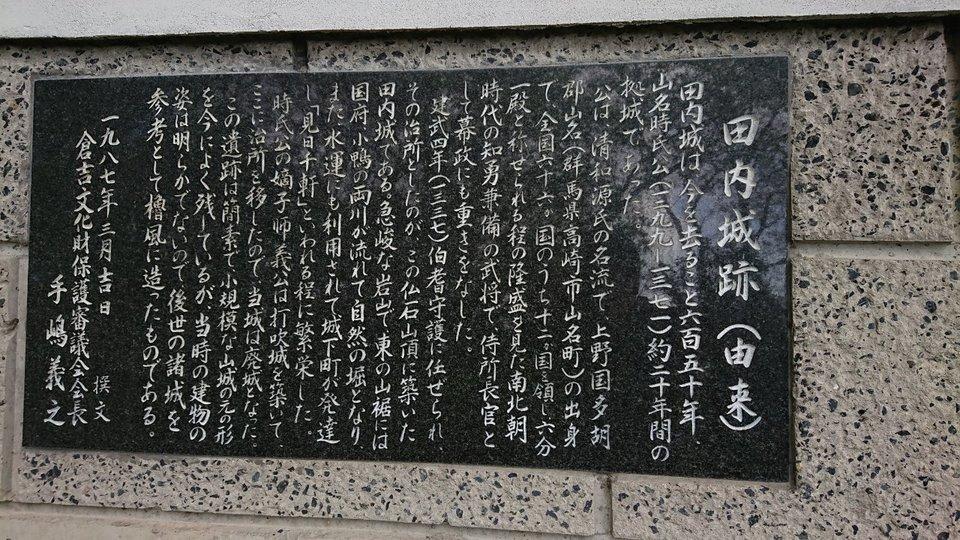 田内城跡（由来）
田内城は、今を去ること六百五十年、
山名時氏公（一二九九ー一三七一）約二十年間の
拠城であった。
公は、清和源氏の名流で、上野国多胡
郡山名（群馬県高崎市山名町）の出身
で、全国六十六ヵ国のうち十二ヵ国を領し、六分
一殿と称せられる程の隆盛を見た南北朝
時代の知勇兼備の武将で、侍所長官と
して幕政にも重きをなした。
建武四年（一三三七）伯耆守護に任ぜられ、
その治所としたのが、この仏石山頂に築いた
田内城である。急峻な岩山で、東の山裾には
国府、小鴨の両川が流れて自然の堀となり、
また水運にも利用されて城下町が発達
し「見日千軒」といわれる程に繁栄した。
時氏公の嫡子師義公は打吹城を築いて、
ここに治所を移したので、当城は廃城となった。
この遺跡は簡素で小規模な山城の元の形
を今によく残しているが、当時の建物の
姿は明らかでないので、後世の諸城を
参考として櫓風に造ったものである。
一九八七年三月吉日 撰文
倉吉文化財保護審議会会長
手嶋義之